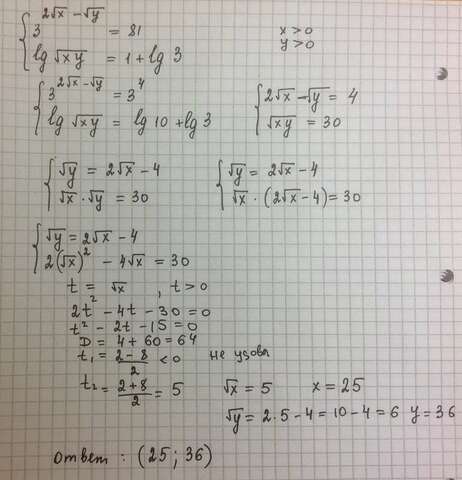 { 3^(2√x − √y) = 81        x>0
{ lg √xy = 1 + lg 3        y>0
{ 3^(2√x−√y) = 3^4        { 2√x − √y = 4
{ lg √xy = lg 10 + lg 3        { √xy = 30
{ √y = 2√x − 4        { √y = 2√x − 4
{ √x · √y = 30        { √x · (2√x − 4) = 30
{ √y = 2√x − 4
{ 2(√x)² − 4√x = 30
t = √x , t > 0
2t² − 4t − 30 = 0
t² − 2t − 15 = 0
D = 4 + 60 = 64
t₁ = (2 − 8)/2 < 0 не удовл
t₂ = (2 + 8)/2 = 5        √x = 5        x = 25
√y = 2·5 − 4 = 10 − 4 = 6 y = 36
ответ : (25 ; 36)